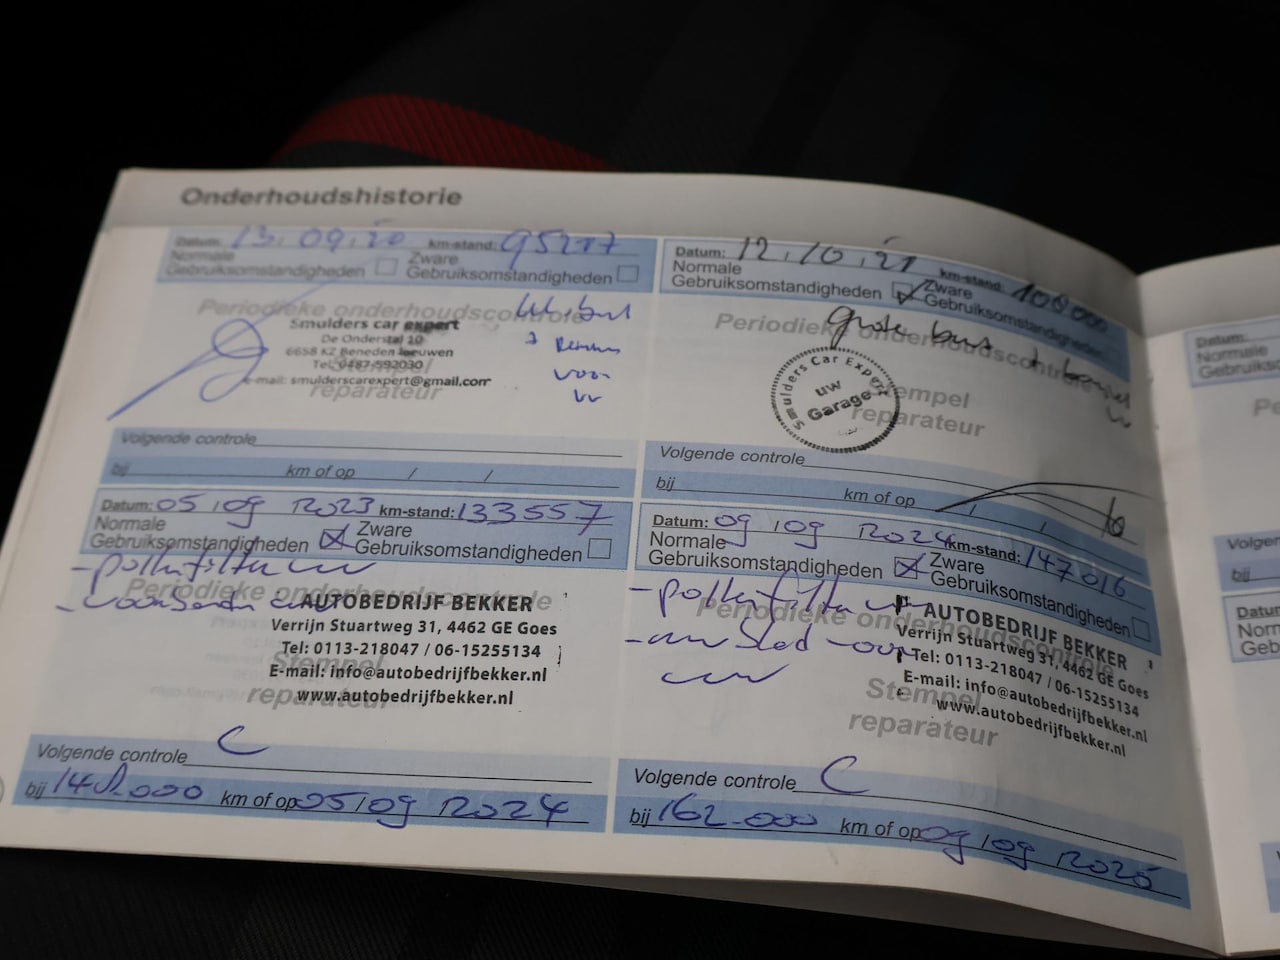 Onderhoudshistorie
Datum: 13.09.20 km-stand: 95217
Normale
Gebruiksomstandigheden
Zware
Gebruiksomstandigheden
Periodieke onderhoudscontrole
Smulders car expert
De Onderstal 10
6658 KZ Beneden leeuwen
Tel: 0487-592030
e-mail: smulderscarexpert@gmail.com
Stempel
reparateur
voor
Volgende controle
bij km of op / /
Datum: 12.10.21 km-stand: 108000
Normale
Gebruiksomstandigheden
Zware
Gebruiksomstandigheden
Periodieke onderhoudscontrole
grote beurt
Smulders Car Expert
uw
Garage
Stempel
reparateur
Volgende controle
bij km of op / /
Datum: 05/09/2023 km-stand: 133557
Normale
Gebruiksomstandigheden
Zware
Gebruiksomstandigheden
- pollenfilter
Periodieke onderhoudscontrole
AUTOBEDRIJF BEKKER
Verrijn Stuartweg 31, 4462 GE Goes
Tel: 0113-218047 / 06-15255134
Stempel
E-mail: info@autobedrijfbekker.nl
reparateur
www.autobedrijfbekker.nl
Volgende controle
bij 148.000 km of op 05/09/2024
Datum: 09/09/2024 km-stand: 147016
Normale
Gebruiksomstandigheden
Zware
Gebruiksomstandigheden
- pollenfilter
Periodieke onderhoudscontrole
AUTOBEDRIJF BEKKER
Verrijn Stuartweg 31, 4462 GE Goes
Tel: 0113-218047 / 06-15255134
E-mail: info@autobedrijfbekker.nl
www.autobedrijfbekker.nl
Stempel
reparateur
Volgende controle
bij 162.000 km of op 09/09/2025
Datum:
Normale
Volgen
bij
Datu
Norm
Geb